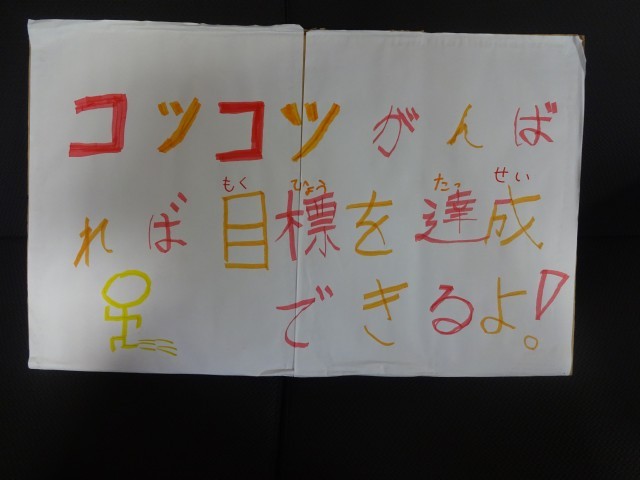 コツコツがんば
れば目標を達成
もく ひょう たっ せい
できるよ!